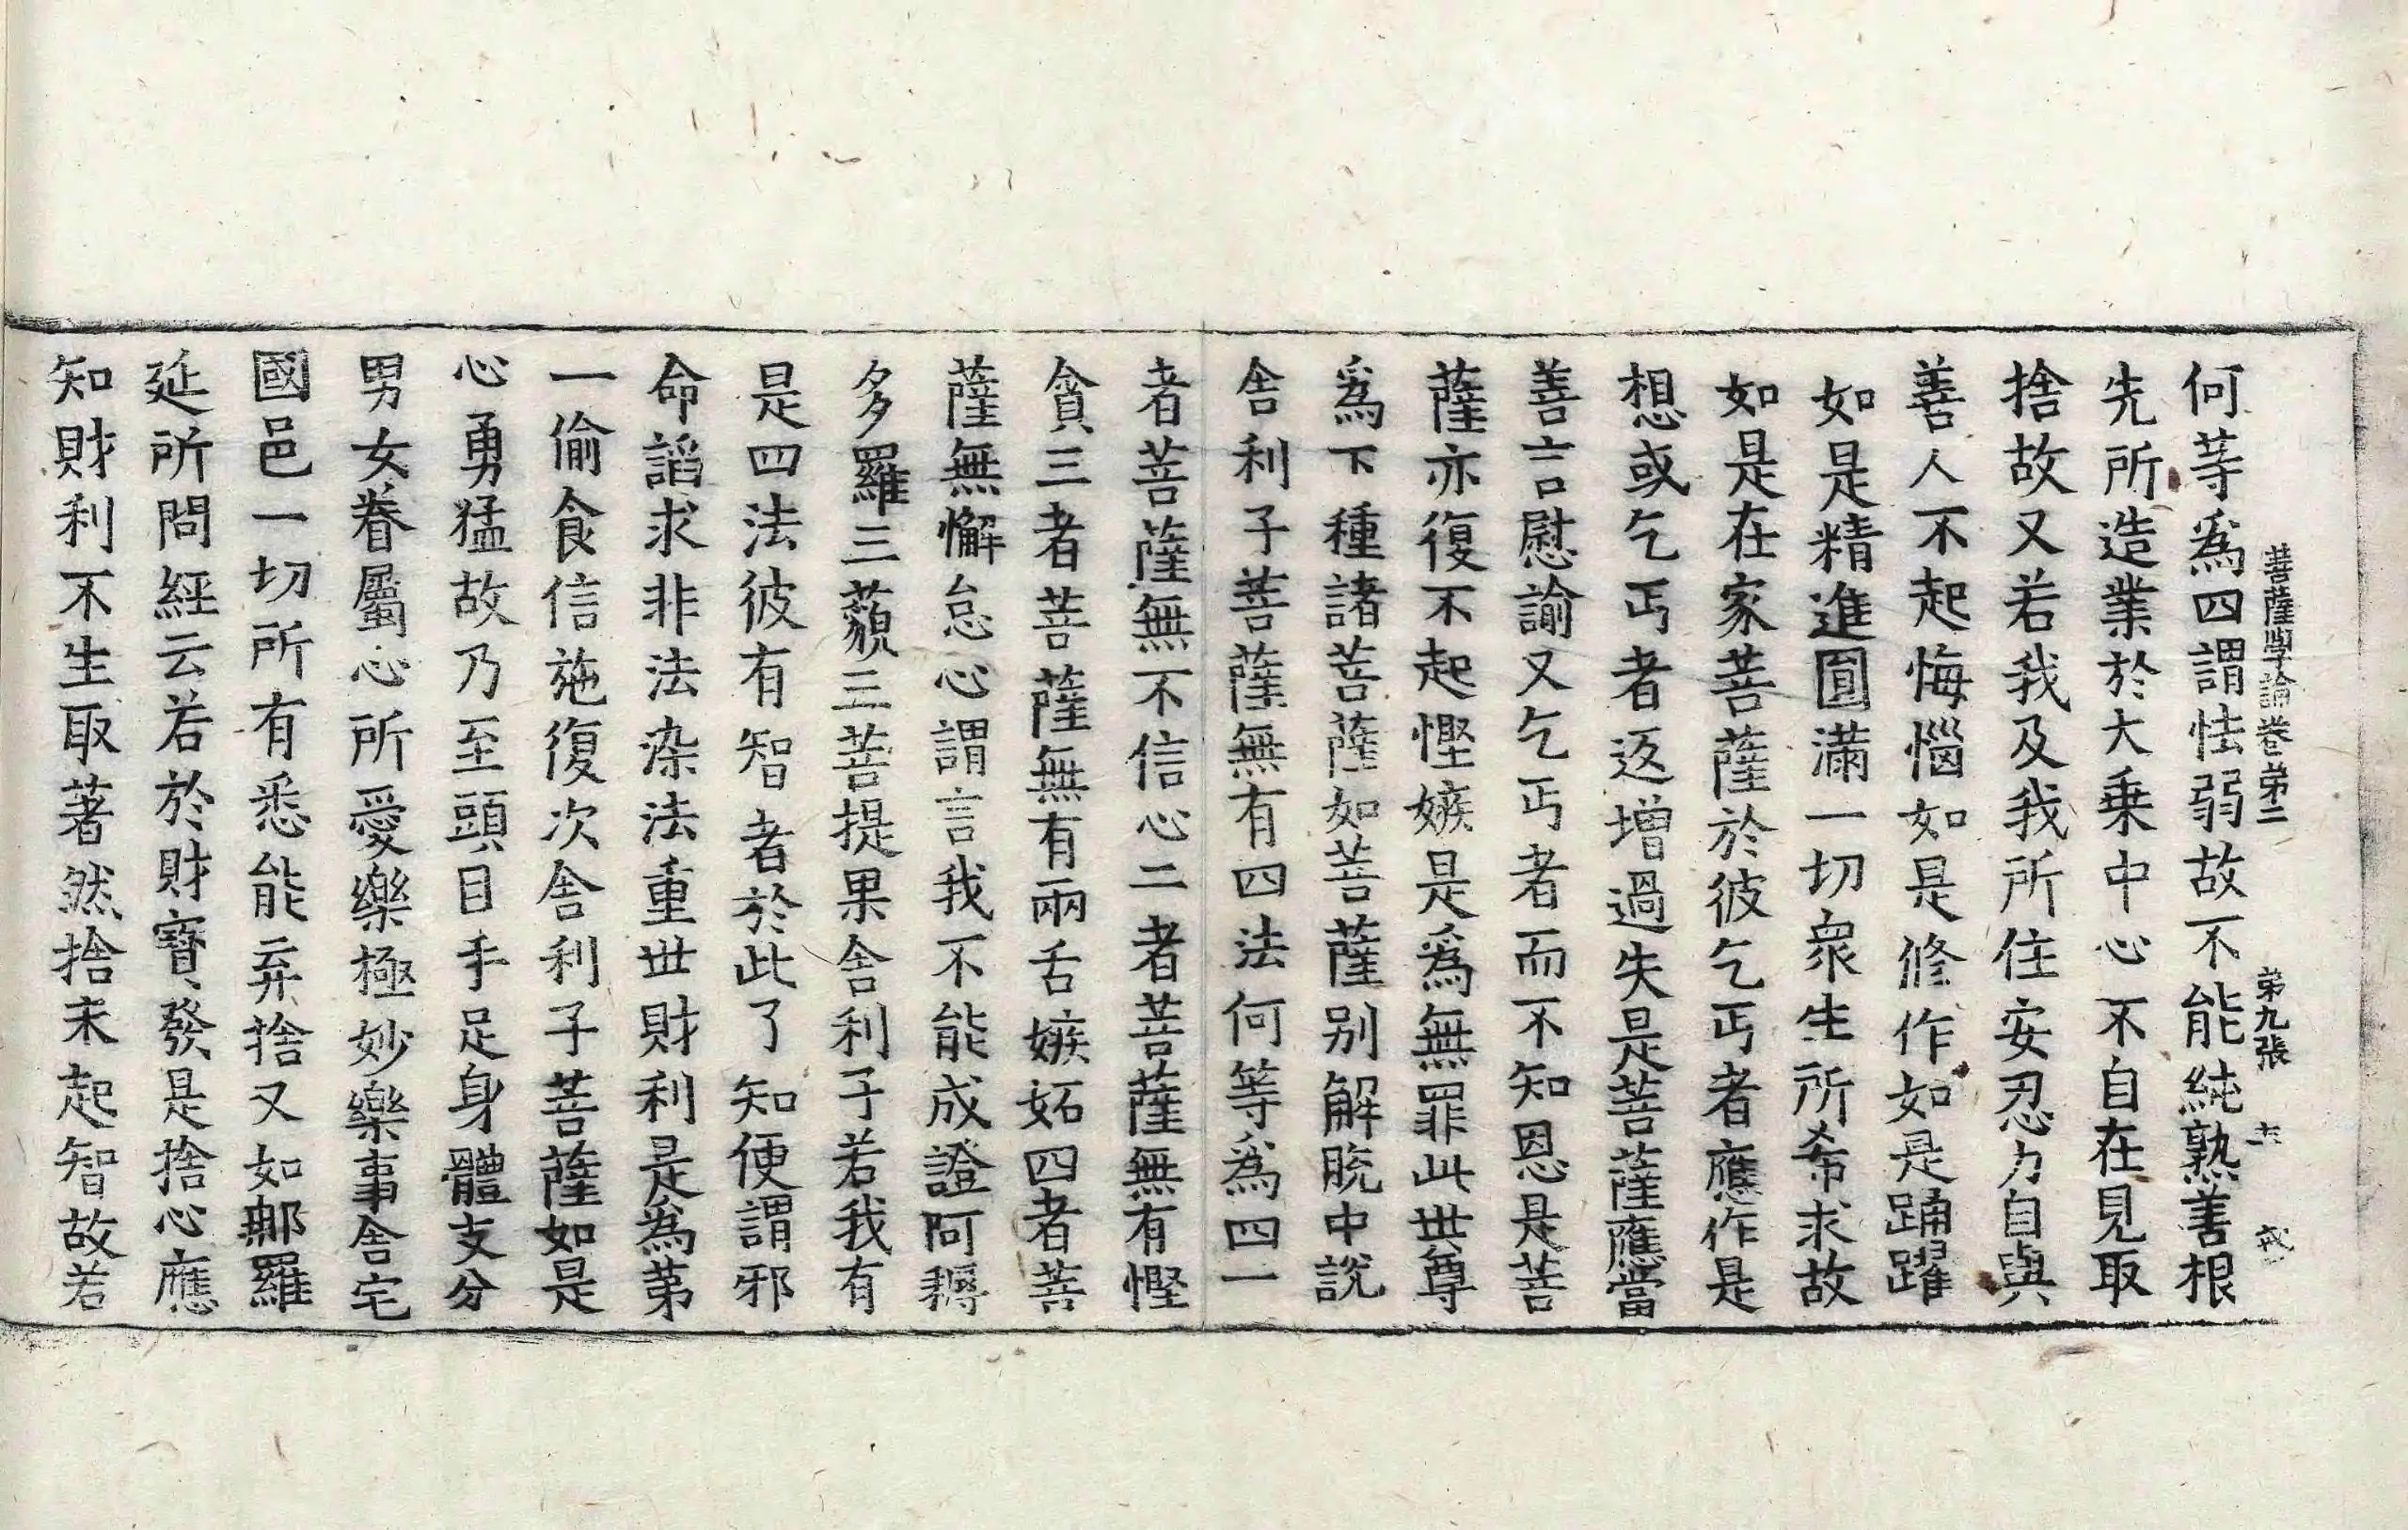 菩薩學論卷第二 第九張 戒
何等爲四謂怯弱故不能純熟善根
先所造業於大乗中心不自在見取
捨故又若我及我所住安忍力自與
善人不起悔惱如是修作如是踊躍
如是精進圓滿一切衆生所希求故
如是在家菩薩於彼乞丐者應作是
想或乞丐者返增過失是菩薩應當
善言慰諭又乞丐者而不知恩是菩
薩亦復不起慳嫉是爲無罪此世尊
爲下種諸菩薩如菩薩别解脫中說
舎利子菩薩無有四法何等爲四一
者菩薩無不信心二者菩薩無有慳
貪三者菩薩無有兩舌嫉妬四者菩
薩無懈怠心謂言我不能成證阿耨
多羅三藐三菩提果舎利子若我有
是四法彼有智者於此了知便謂邪
命謟求非法染法重世財利是為第
一偷食信施復次舎利子菩薩如是
心勇猛故乃至頭目手足身體支分
男女眷屬心所愛樂極妙樂事舎宅
國邑一切所有悉能弃捨又如那羅
延所問經云若於財寳發是捨心應
知財利不生取著然捨未起智故若